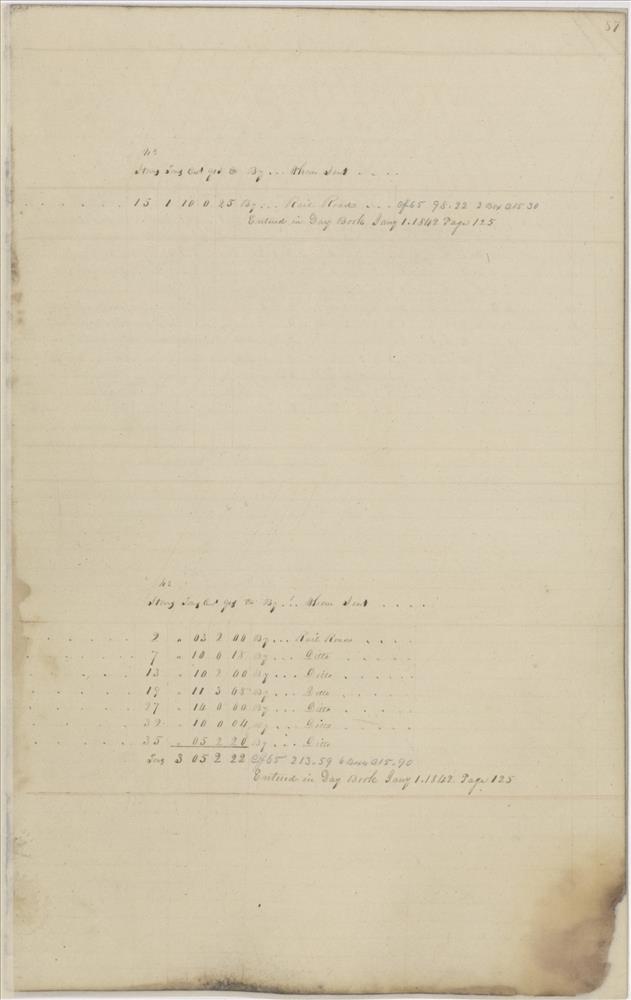 57
No
Tons Cwt qrs lb By . . . Whom Sent . . . .
. . . . . . . 15 1 10 0 25 By . . . Rail Road . . . @65 98.22 2 Box @15 30
Entered in Day Book Jany 1. 1842 Page 125
No
Tons Cwt qrs lb By . . . Whom Sent . . . . .
. . . . . . 2 " 03 2 00 By . . . Rail Road . . . . .
. . . . . . 7 " 10 0 18 By . . . Ditto . . . . . .
. . . . . . 13 " 10 2 00 By . . . Ditto . . . . . .
. . . . . . 19 " 11 3 08 By . . . Ditto . . . . . .
. . . . . . 27 " 14 0 00 By . . . Ditto . . . . . .
. . . . . . 32 " 10 0 04 By . . . Ditto . . . . . .
. . . . . . 35 " 05 2 20 By . . . Ditto
Tons 3 05 2 22 @65 213.59 6 Boxes @15.90
Entered in Day Book Jany 1. 1842. Page 125